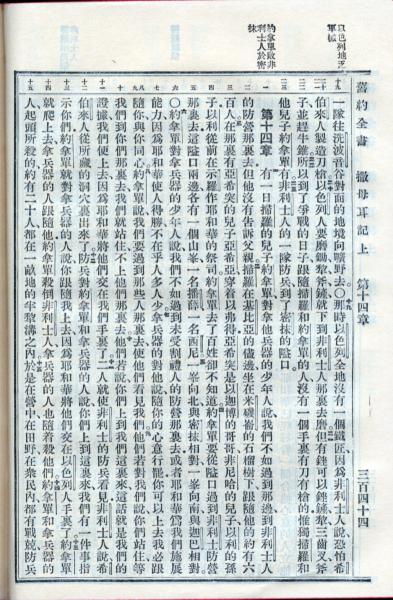 舊約全書 撒母耳記上 第十四章 三百四十四
以色列地乏
軍械
約拿單敗非
利士人於密
抹
一隊往洗波音谷對面的地境向曠野去○那時以色列全地沒有一個鐵匠因爲非利士人說恐怕希
伯來人製造刀槍以色列人要磨鋤犁斧鏟就下到非利士人那裏去磨但有銼可以銼鏟犁三齒叉斧
子並趕牛錐所以到了爭戰的日子跟隨掃羅和約拿單的人沒有一個手裏有刀有槍的惟獨掃羅和
他兒子約拿單有○非利士人的一隊防兵到了密抹的隘口
第十四章 有一日掃羅的兒子約拿單對拿他兵器的少年人說我們不如過到那邊到非利士人
的防營那裏去但他沒有告訴父親掃羅在基比亞的儘邊坐在米磯崙的石榴樹下跟隨他的約有六
百人在那裏有亞希突的兒子亞希亞穿着以弗得亞希突是以迦博的哥哥非尼哈的兒子以利的孫
子以利從前在示羅作耶和華的祭司約拿單去了百姓卻不知道約拿單要從隘口過到非利士防營
那裏去這隘口兩邊各有一個山峯一名播薛一名西尼一峯向北與密抹相對一峯向南與迦巴相對
○約拿單對拿兵器的少年人說我們不如過到未受割禮人的防營那裏去或者耶和華爲我們施展
能力因爲耶和華使人得勝不在乎人多人少拿兵器的對他說隨你的心意行罷你可以上去我必跟
隨你與你同心約拿單說我們要過到那些人那裏去使他們看見我們他們若對我們說你們站住等
我們到你們那裏去我們就站住不上他們那裏去他們若說你們上到我們這裏來這話就是我們的
證據我們便上去因爲耶和華將他們交在我們手裏了二人就使非利士的防兵看見非利士人說希
伯來人從所藏的洞穴裏出來了防兵對約拿單和拿兵器的人說你們上到這裏來我們有一件事指
示你們約拿單就對拿兵器的人說你跟隨我上去因爲耶和華將他們交在以色列人手裏了約拿單
就爬上去拿兵器的人跟隨他約拿單殺倒非利士人拿兵器的人也隨着殺他們約拿單和拿兵器的
人起頭所殺的約有二十人都在一畝地的半犁溝之內於是在營中在田野在衆民內都有戰兢防兵